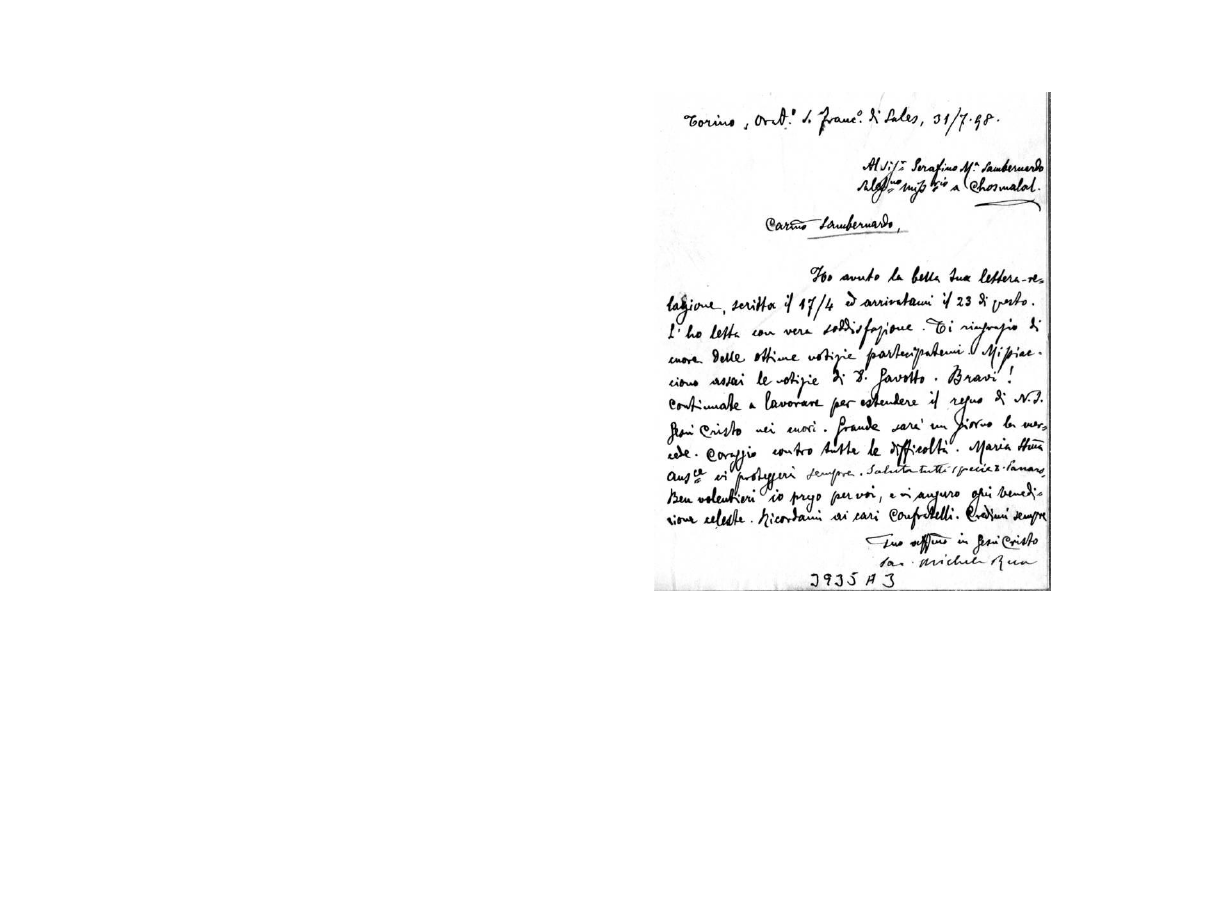 Torino, Orat.º S. Franc.º di Sales, 31/7.98.
Al Sig.r Serafino M.ª Sambernardo
Miss.rio a Chosmalal.
Car.mo Sambernardo,
Ho avuto la bella tua lettera-re-
lazione, scritta il 17/4 ed arrivatami il 23 di questo.
L'ho letta con vera soddisfazione. Ti ringrazio di
cuore delle ottime notizie partecipatemi. Mi piac-
ciono assai le notizie di D. Gavotto. Bravi!
Continuate a lavorare per estendere il regno di N.S.
Gesù Cristo nei cuori. Grande sarà un giorno la mer-
cede. Coraggio contro tutte le difficoltà. Maria SS.ma
Aus.ce vi proteggerà sempre. Saluta tutti specie D.
Ben volentieri io prego per voi, e vi auguro ogni benedi-
zione celeste. Ricordami ai cari Confratelli. Credimi sempre
Tuo aff.mo in Gesù Cristo
Sac. Michele Rua
3935 A 3